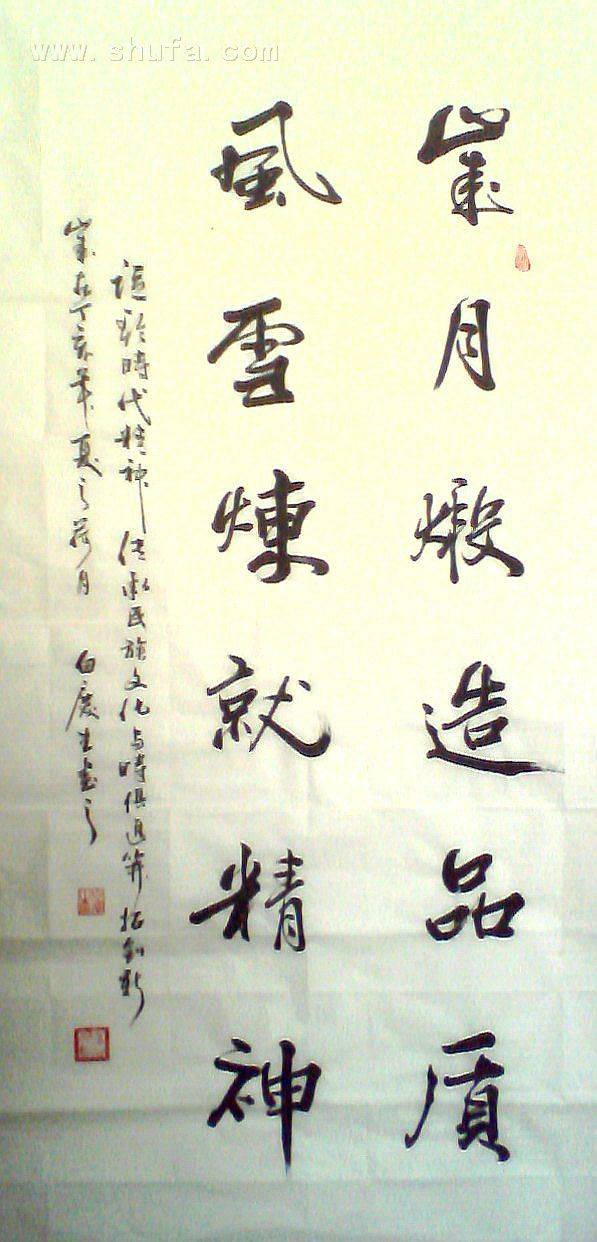 歲月煅造品质
風雪煉就精神
時代精神 传承民族文化与時俱進開拓創新
歲在丁亥年夏之荷月 白慶生書之
www.shufa.com